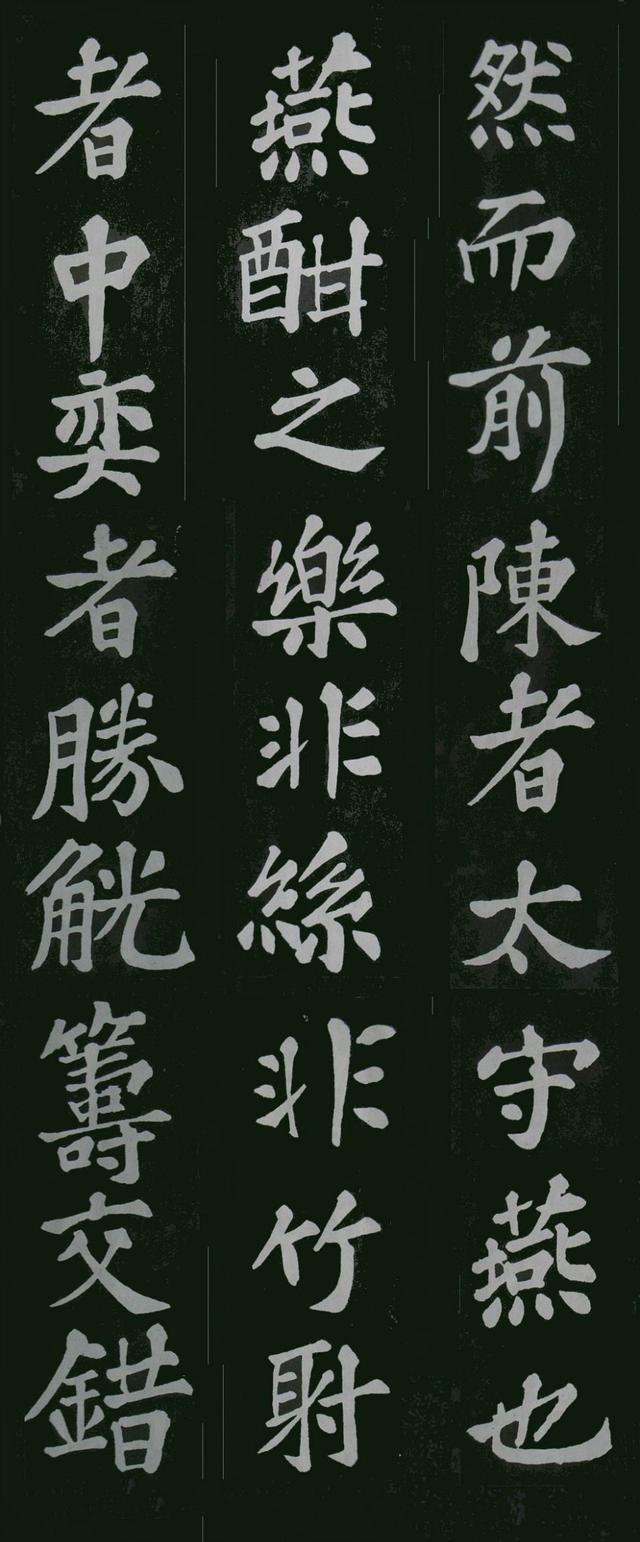 然而前陳者太守燕也
燕酣之樂非絲非竹射
者中奕者勝觥籌交錯